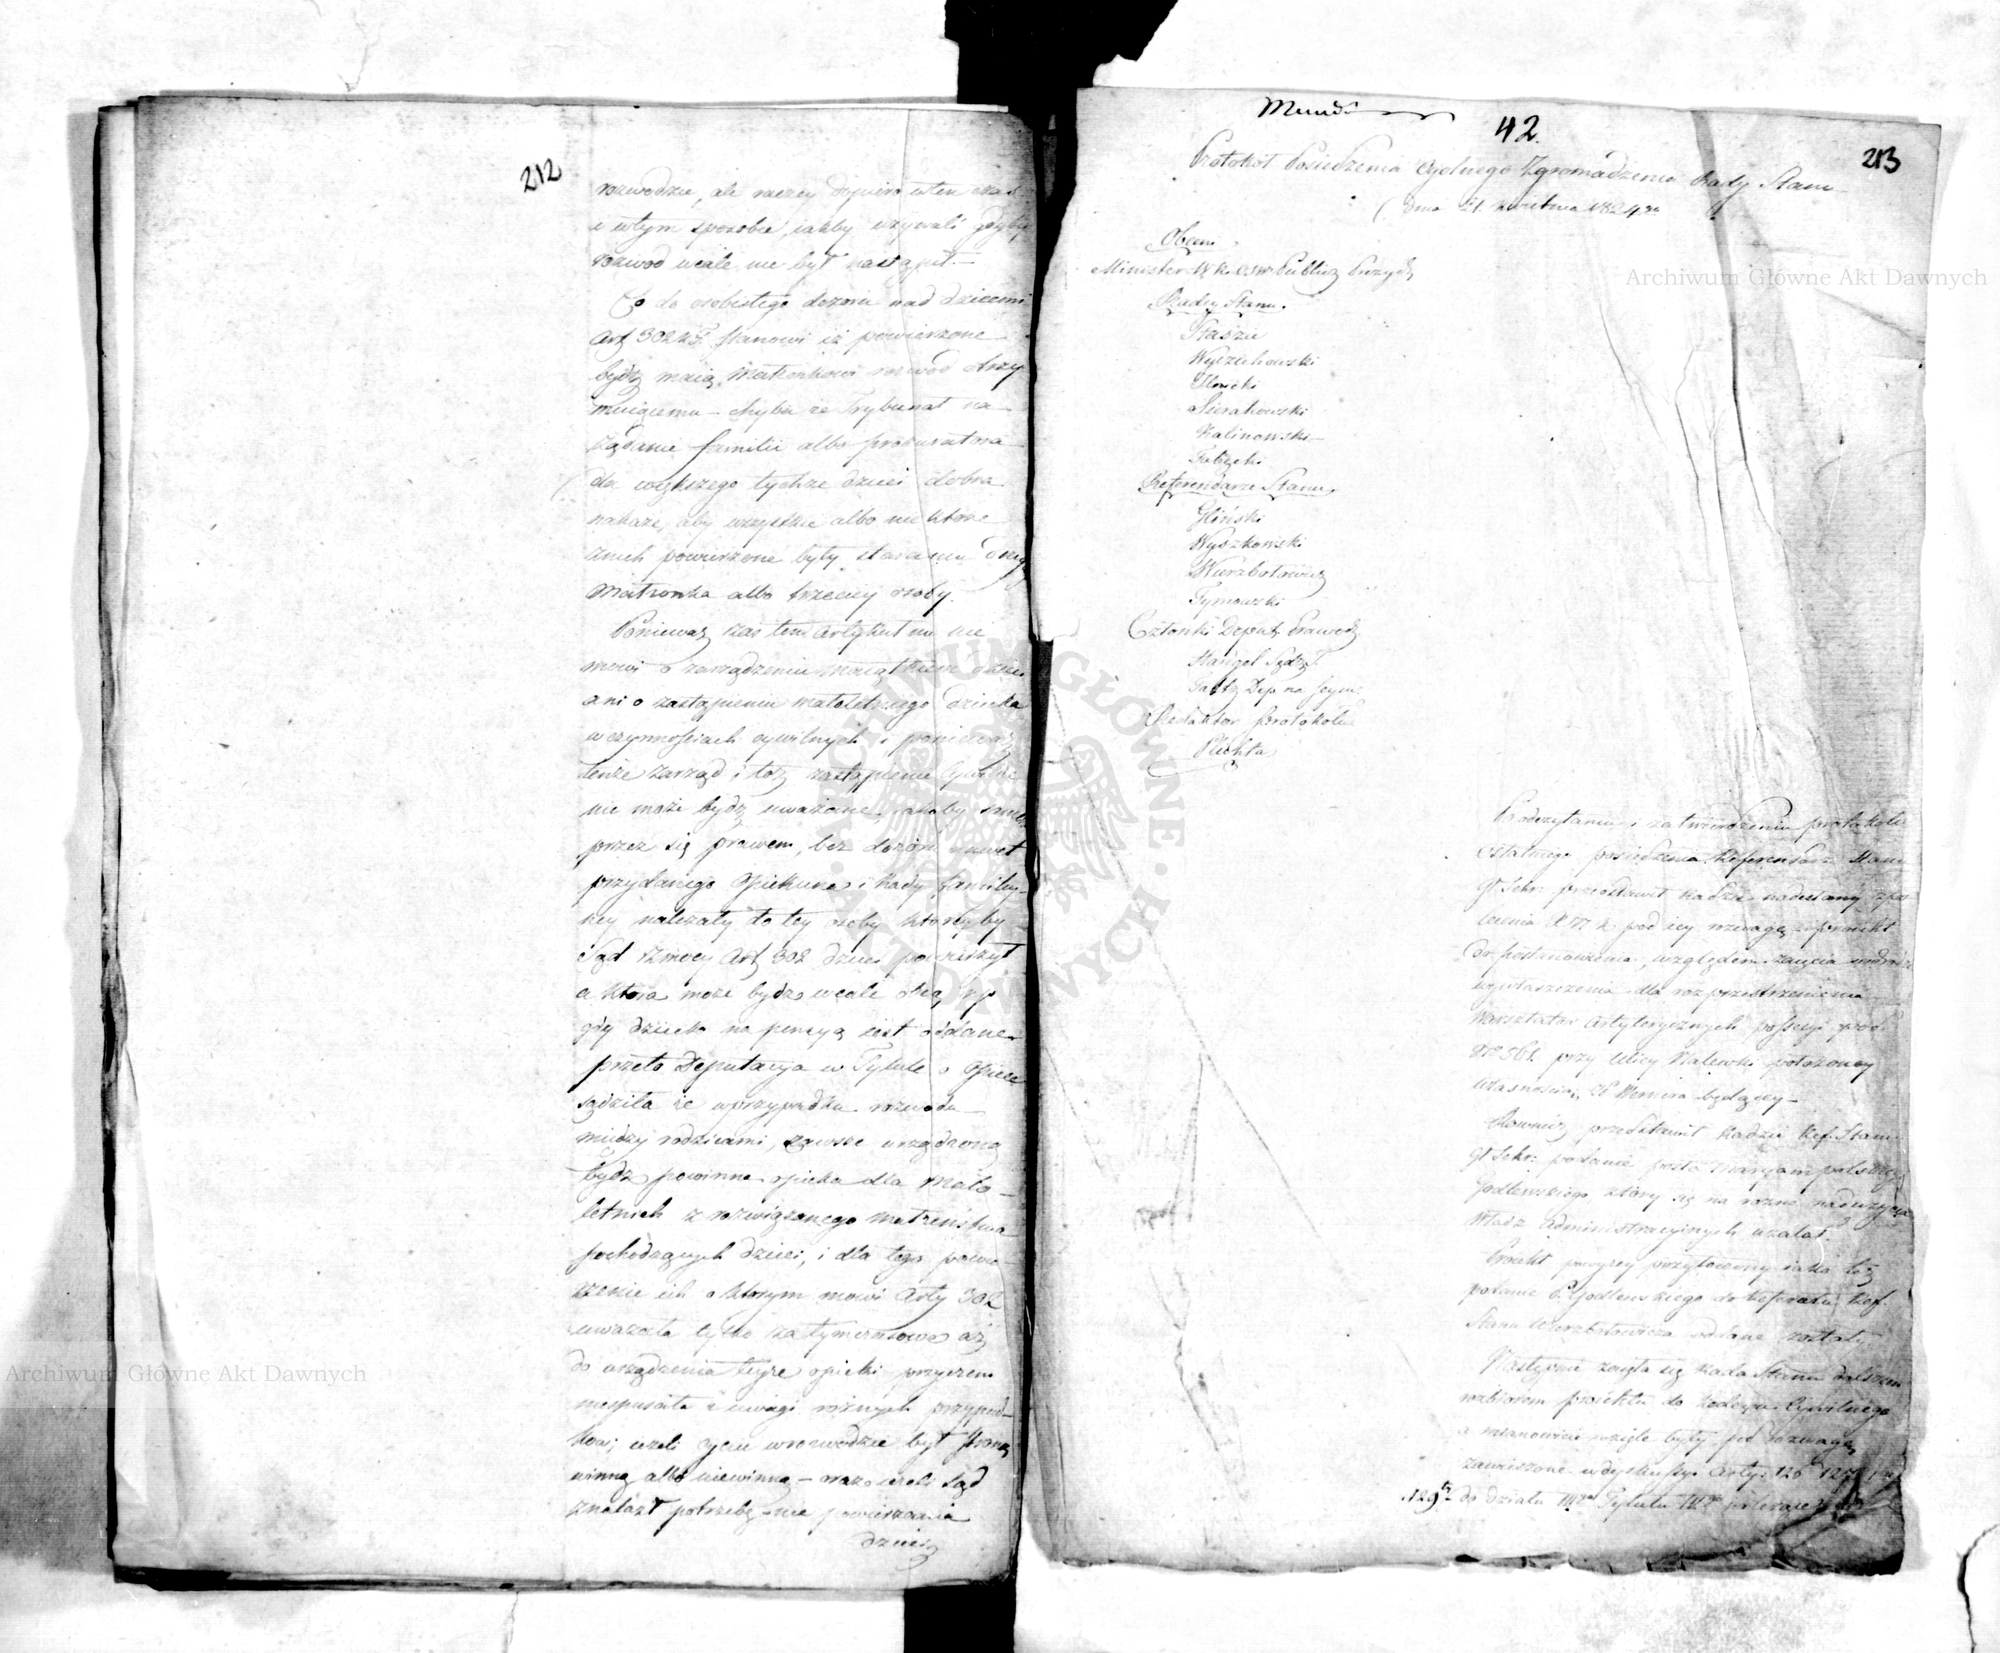 212
rozwodzie, ale raczey dopiero wten czas
i wtym sposobie, iakby używali gdyby
rozwod wcale nie był nastąpił. —
Co do osobistego dozoru nad dziećmi
Art 302 stanowi iż powierzone
bydź maią Małżonkowi rozwod otrzy
muiącemu – chyba że Trybunał na
żądanie familii albo prokuratora
dla większego tychże dzieci dobra
nakaże, aby wszystkie albo niektóre
znich powierzone były staraniu drug
Małżonka albo trzeciey osoby.
Ponieważ zaś ten Artykuł nic nie
mowi o zarządzeniu maiątkiem dzieci
ani o zastąpieniu małoletniego dziecka
w czynnościach cywilnych i ponieważ
tenże zarząd i toż zastąpienie Cywilne
nie może bydź uważane, jakoby samo
przez się prawem, bez dozoru nawet
przydanego Opiekuna i Rady familiy-
ney należały do tey osoby któreyby
Sąd zmocy Art 302 dzieci powierzył
a ktora może bydź wcale obcą, np
gdy dziecko na pensyą iest oddane
przeto Deputacya w Tytule o Opiece
sądziła że w przypadku rozwodu
między rodzicami, zawsze urządzona
bydź powinna opieka dla mało-
letnich z rozwiązanego małżeństwa
pochodzących dzieci, i dla tego powie-
rzenie ich o ktorym mowi Arty 302
uważała tylko za tymczasowe aż
do urządzenia teyże opieki przyczem
niespuściła z uwagi rożnych przypad-
kow; ieżeli oyciec w rozwodzie był stroną
winną albo niewinną – oraz ieżeli Sąd
znalazł potrzebę nie powierzania
dzieci
Mund
42.
213
Protokół Posiedzenia Ogólnego Zgromadzenia Rady Stanu
dnia 21. Kwietnia 1824 ro
Obecni
Minister Publicz Prezyd
Radcy Stanu.
Staszic
Wyczechowski
Sierakowski
Kalinowski
Referendarze Stanu
Gliński
Wyszkowski
Wierzbołowicz
Tymowski
Członki Deput. Prawod
Hangel Sędz
Dep na Seym.
Redaktor Protokołu
Plichta
Po odczytaniu i zatwierdzeniu protokołu
ostatniego posiedzenia Referendarz Stanu
Gł Sekr: przedstawił Radzie nadesłany zpo
lecenia pod iey rozwagę proiekt
do postanowienia, względem zaięcia
wywłaszczenia dla rozprzestrzenienia
Warsztatow Artyleryicznych possesyi pod
Nro 561. przy Ulicy Nalewki położoney
własnością Wernera będącey –
Rownież przedstawił Radzie Ref. Stanu
Gł Sekr: podanie posła Maryampolskieg
Godlewskiego, który się na rożne nadużycia
Władz Administracyinych użalał.
Proiekt powyżey przytoczony iako też
podanie P. Godlewskiego do Referatu Ref.
Stanu Wierzbołowicza oddane zostały
Następnie zaięła się Rada Stanu dalszem
rozbiorem proiektu do Kodexu Cywilnego
a mianowicie wzięte były pod rozwagę
zawieszone w dyskussyi Arty: 126 127
129ty do działu Tytułu należące